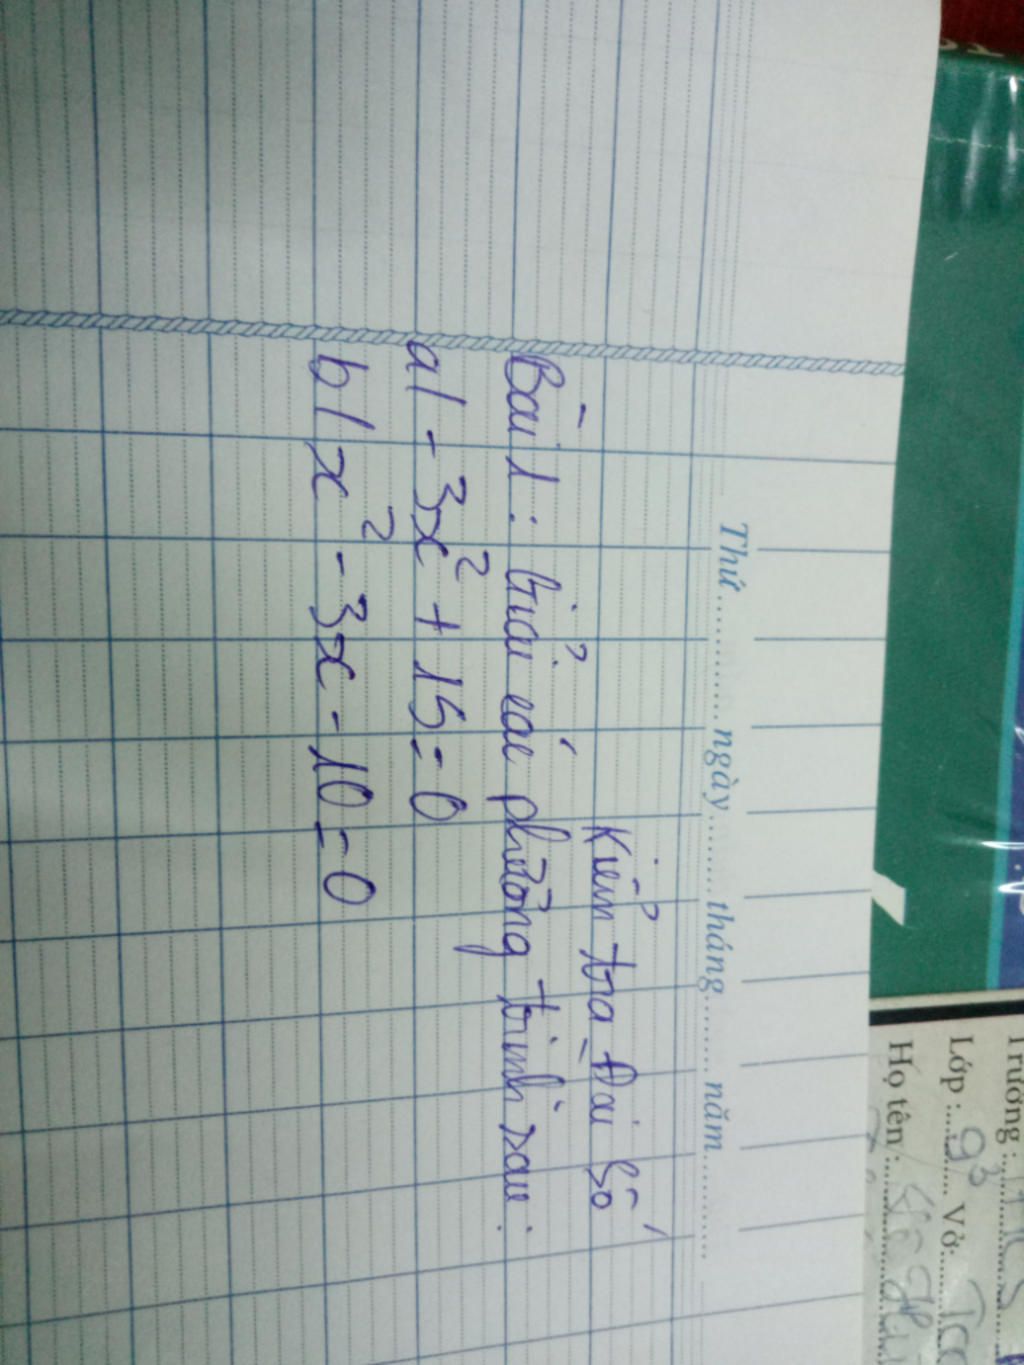 Thứ.............ngày.........tháng.........năm............
Kiểm tra Đại Số
Bài 1: Giải các phương trình sau:
a/ -3x² + 15 = 0
b/ x² - 3x - 10 = 0
Trường:
Lớp: 9³ Vở:
Họ tên: